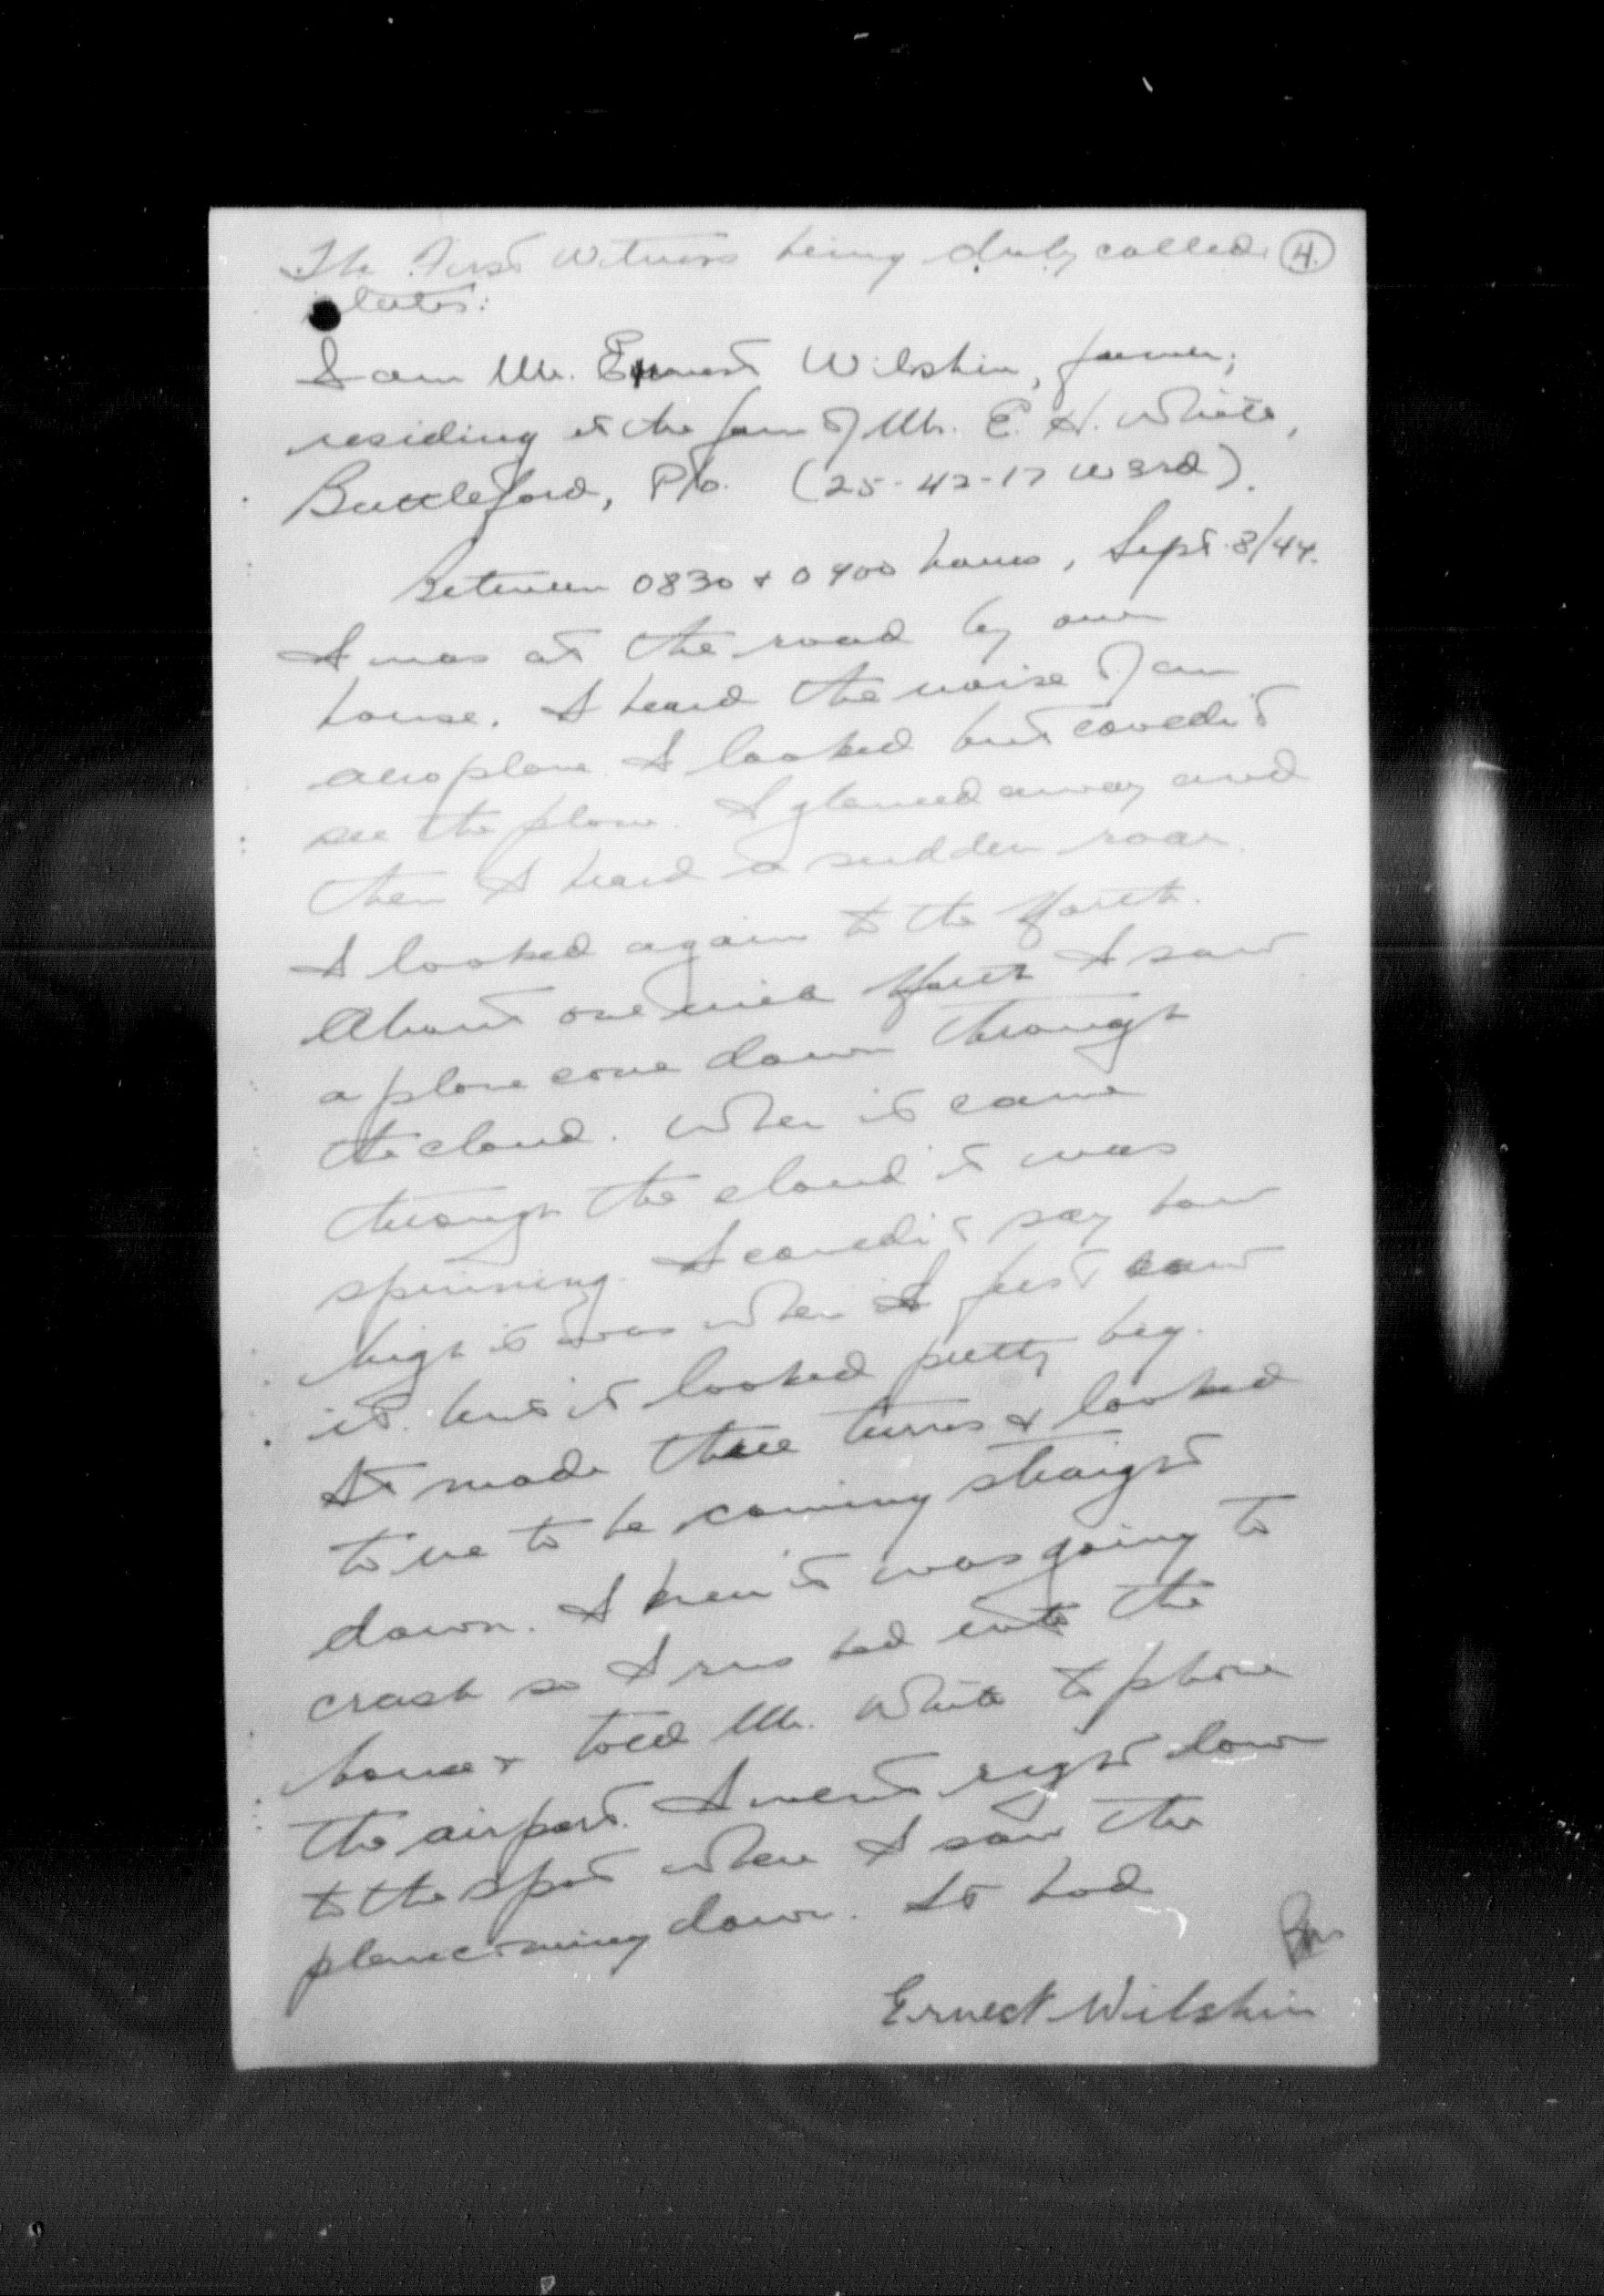 The First Witness being duly called 4.
states:
I am Mr. Ernest Wilshin, farmer,
residing at the farm of Mr. E. H. White,
Battleford, P/o. (25-42-17 W3rd).
Between 0830 + 0900 hours, Sept. 8/44.
I was at the road by our
house. I heard the noise of an
aeroplane. I looked but couldn't
see the plane. I glanced away and
then I heard a sudden roar.
I looked again to the North.
About one mile North I saw
a plane come down through
the cloud. When it came
through the cloud it was
spinning. I couldn't say how
high it was when I first saw
it but it looked pretty big.
It made three turns + looked
to me to be coming straight
down. I knew it was going to
crash so I rushed into the
house + told Mr. White to phone
the airport. I went right down
to the spot where I saw the
plane coming down. It had
Ernest Wilshin